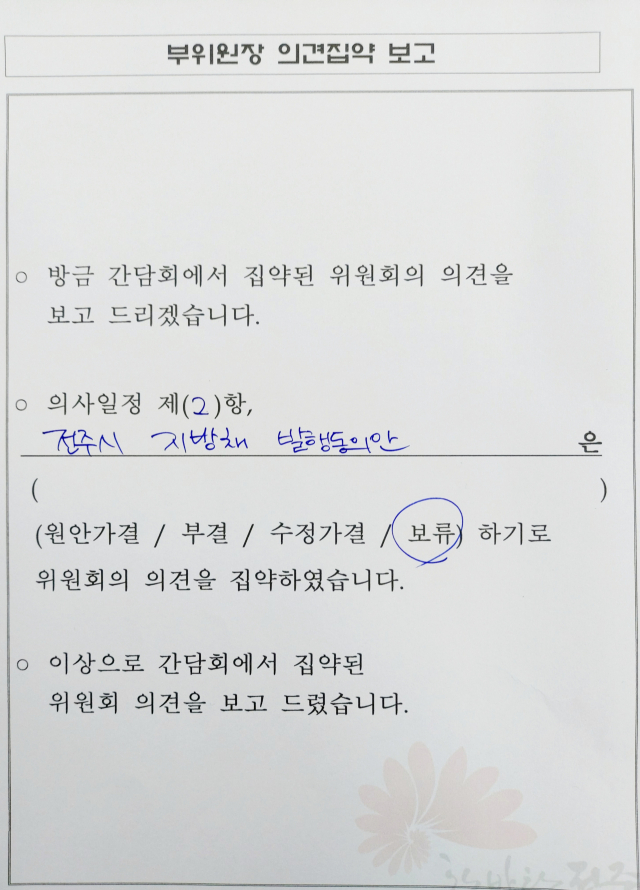 부위원장 의견집약 보고
○ 방금 간담회에서 집약된 위원회의 의견을
보고 드리겠습니다.
○ 의사일정 제(2)항,
전주시 지방채 발행동의안 은
( )
(원안가결 / 부결 / 수정가결 / 보류) 하기로
위원회의 의견을 집약하였습니다.
○ 이상으로 간담회에서 집약된
위원회 의견을 보고 드렸습니다.